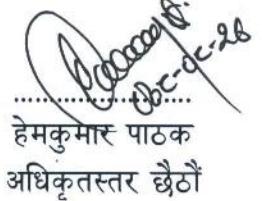 हेमकुमार पाठक
अधिकृतस्तर छैठौं